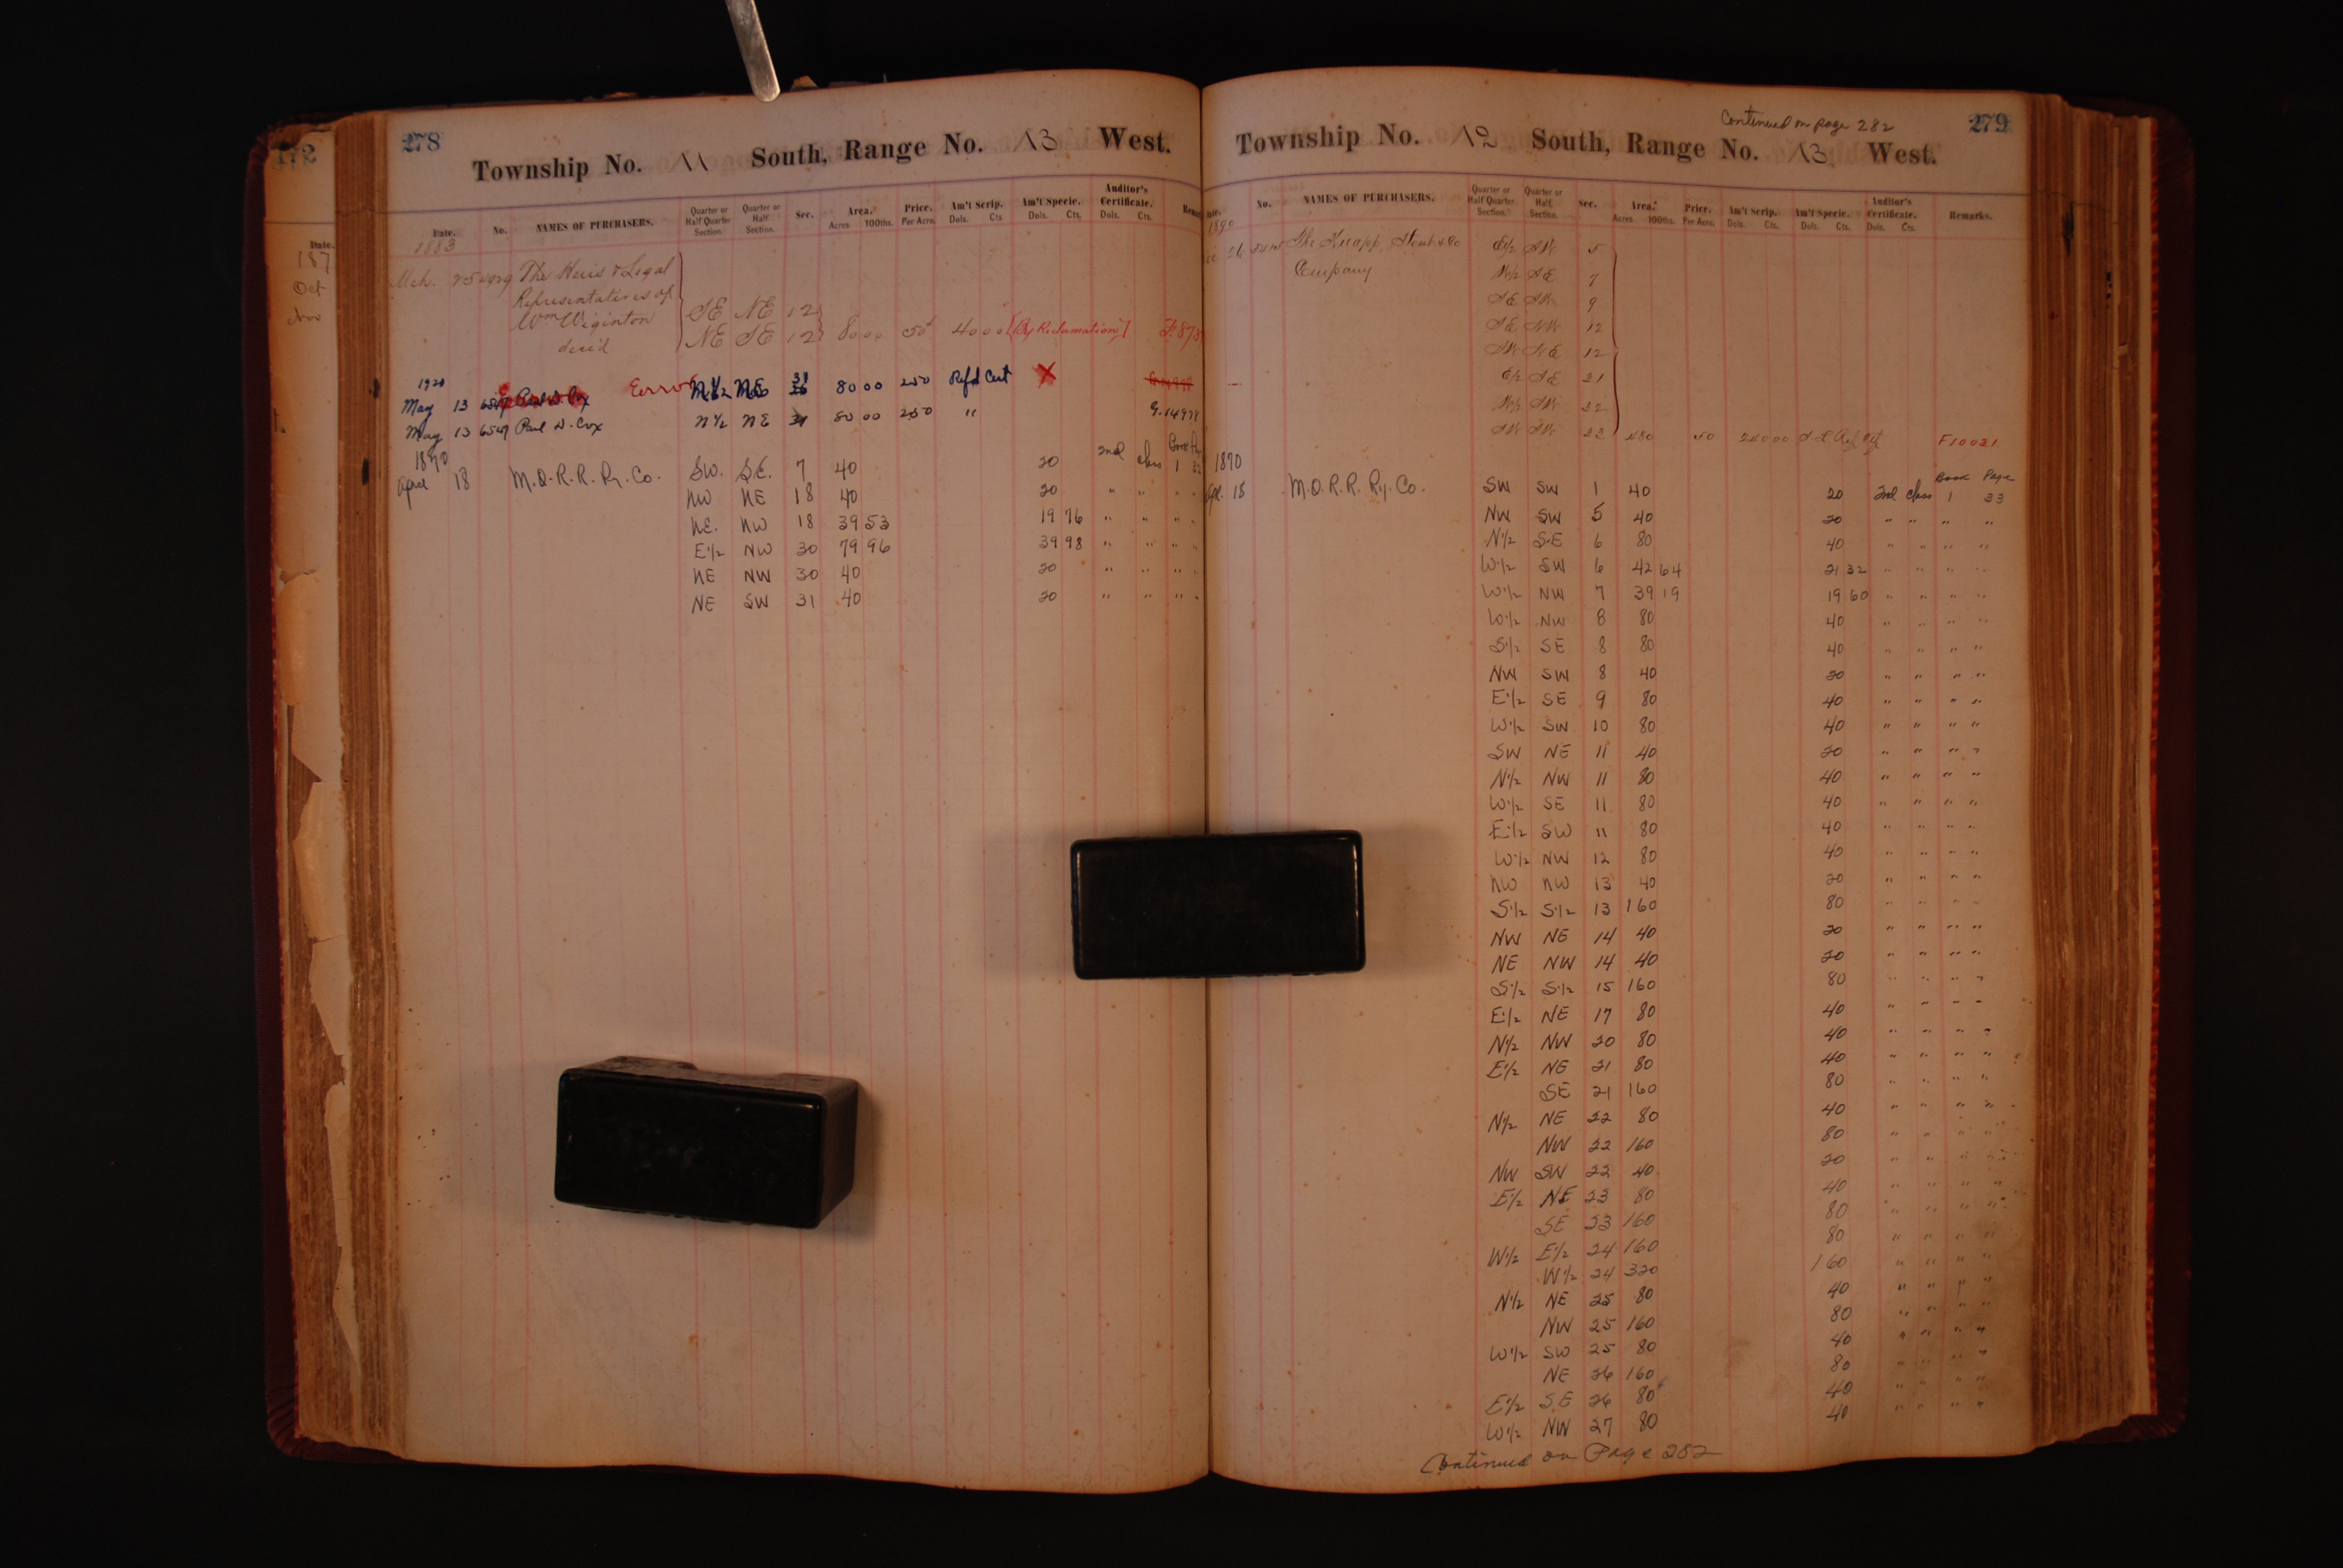 172
Date.
187
Oct
278
Township No. 11 South, Range No. 13 West.
Date. No. NAMES OF PURCHASERS. Quarter or Half Quarter Section. Quarter or Half Section. Sec. Area. Acres 100ths. Price. Per Acre. Am't Scrip. Dols. Cts. Am't Specie. Dols. Cts. Auditor's Certificate. Dols. Cts.
1883
Mch. 25 The Heirs & Legal
Representatives of
Wm Wiginton SE NE 12
dec'd NE SE 12 80 00 50 40 00 [By Reclamation]
1920 Error
May 13 6547 Paul D. Cox N½ NE 31 80 00 250 Ref'd Cert X
May 13 6547 Paul D. Cox N½ NE 31 80 00 250 "
1870 Book
April 18 M.O.R.R. Ry. Co. SW. SE. 7 40 20 2nd class 1
NW NE 18 40 20 " " " "
NE. NW 18 39 53 19 76 " " " "
E½ NW 30 79 96 39 98 " " " "
NE NW 30 40 20 " " " "
NE SW 31 40 20 " " " "
Continued on page 282
279
Township No. 12 South, Range No. 13 West.
Date. No. NAMES OF PURCHASERS. Quarter or Half Quarter Section. Quarter or Half Section. Sec. Area. Acres 100ths. Price. Per Acre. Am't Scrip. Dols. Cts. Am't Specie. Dols. Cts. Auditor's Certificate. Dols. Cts. Remarks.
1890
26 The Knapp, Stout & Co E½ SW 5
Company N½ SE 7
SE SW 9
SE NW 12
SW NE 12
E½ SE 21
N½ SW 22
SW SW 22 480 50 240 00 F10021
1870 Book Page
Apl. 18 M.O.R.R. Ry. Co. SW SW 1 40 20 2nd class 1 33
NW SW 5 40 20 " " " "
N½ SE 6 80 40 " " " "
W½ SW 6 42 64 21 32 " " " "
W½ NW 7 39 19 19 60 " " " "
W½ NW 8 80 40 " " " "
S½ SE 8 80 40 " " " "
NW SW 8 40 20 " " " "
E½ SE 9 80 40 " " " "
W½ SW 10 80 40 " " " "
SW NE 11 40 20 " " " "
N½ NW 11 80 40 " " " "
W½ SE 11 80 40 " " " "
E½ SW 11 80 40 " " " "
W½ NW 12 80 40 " " " "
NW NW 13 40 20 " " " "
S½ S½ 13 160 80 " " " "
NW NE 14 40 20 " " " "
NE NW 14 40 20 " " " "
S½ S½ 15 160 80 " " " "
E½ NE 17 80 40 " " " "
N½ NW 20 80 40 " " " "
E½ NE 21 80 40 " " " "
SE 21 160 80 " " " "
N½ NE 22 80 40 " " " "
NW 22 160 80 " " " "
NW SW 22 40 20 " " " "
E½ NE 23 80 40 " " " "
SE 23 160 80 " " " "
W½ E½ 24 160 80 " " " "
W½ 24 320 160 " " " "
N½ NE 25 80 40 " " " "
NW 25 160 80 " " " "
W½ SW 25 80 40 " " " "
NE 26 160 80 " " " "
E½ SE 26 80 40 " " " "
W½ NW 27 80 40 " " " "
Continued on Page 282